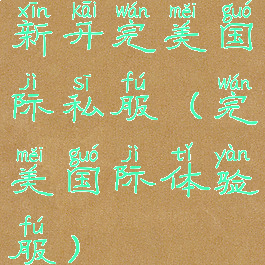 xīn kāi wán měi guó
新开完美国
jì sī fú wán
际私服（完
měi guó jì tǐ yàn
美国际体验
fú
服）